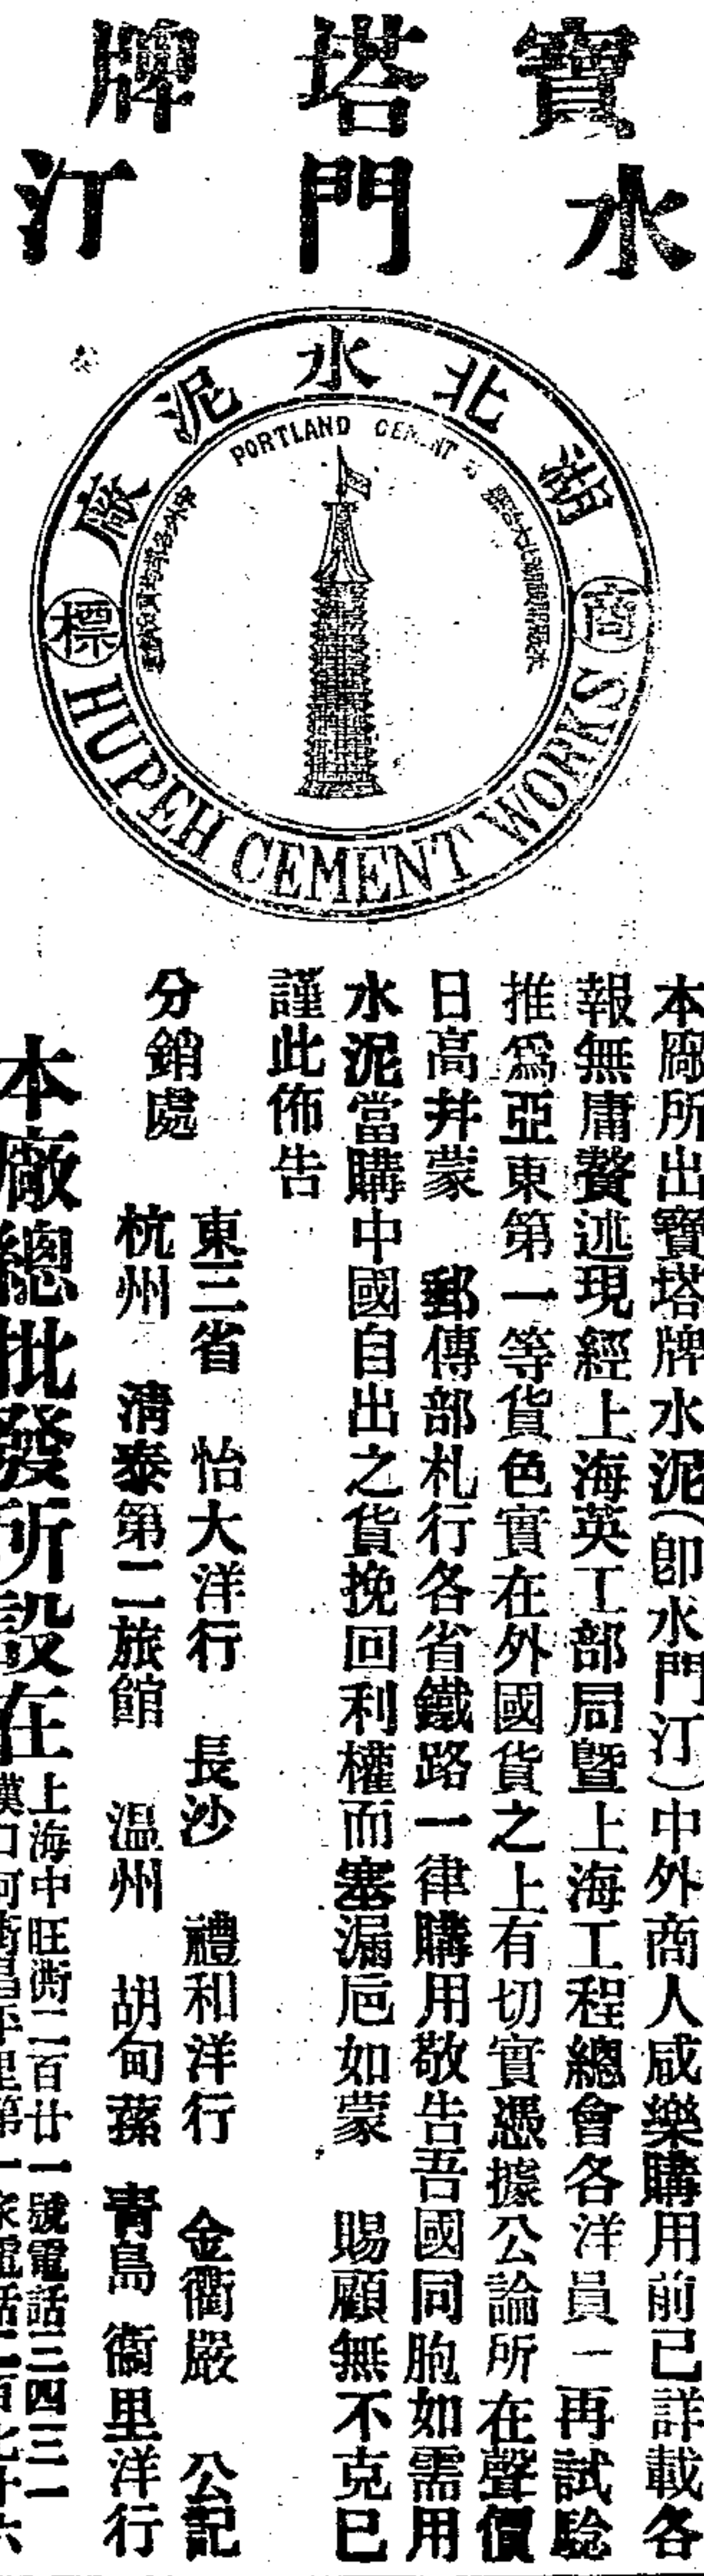 寶塔牌
水門汀
湖北水泥廠
商標
PORTLAND CEMENT
HUPEH CEMENT WORKS
本廠所出寶塔牌水泥(卽水門汀)中外商人咸樂購用前已詳載各
報無庸贅述現經上海英工部局曁上海工程總會各洋員一再試騐
推爲亞東第一等貨色實在外國貨之上有切實憑據公論所在聲價
日高幷蒙　郵傳部札行各省鐵路一律購用敬告吾國同胞如需用
水泥當購中國自出之貨挽回利權而塞漏巵如蒙　賜顧無不克已
謹此佈告
分銷處
東三省　怡大洋行　長沙　禮和洋行　金衢嚴　公記
杭州　淸泰第二旅館　温州　胡甸蓀　靑島　衞里洋行
本廠總批發所設在
上海中旺街二百廿一號電話三四三一
漢口河街昌平里第一家電話二百七十六